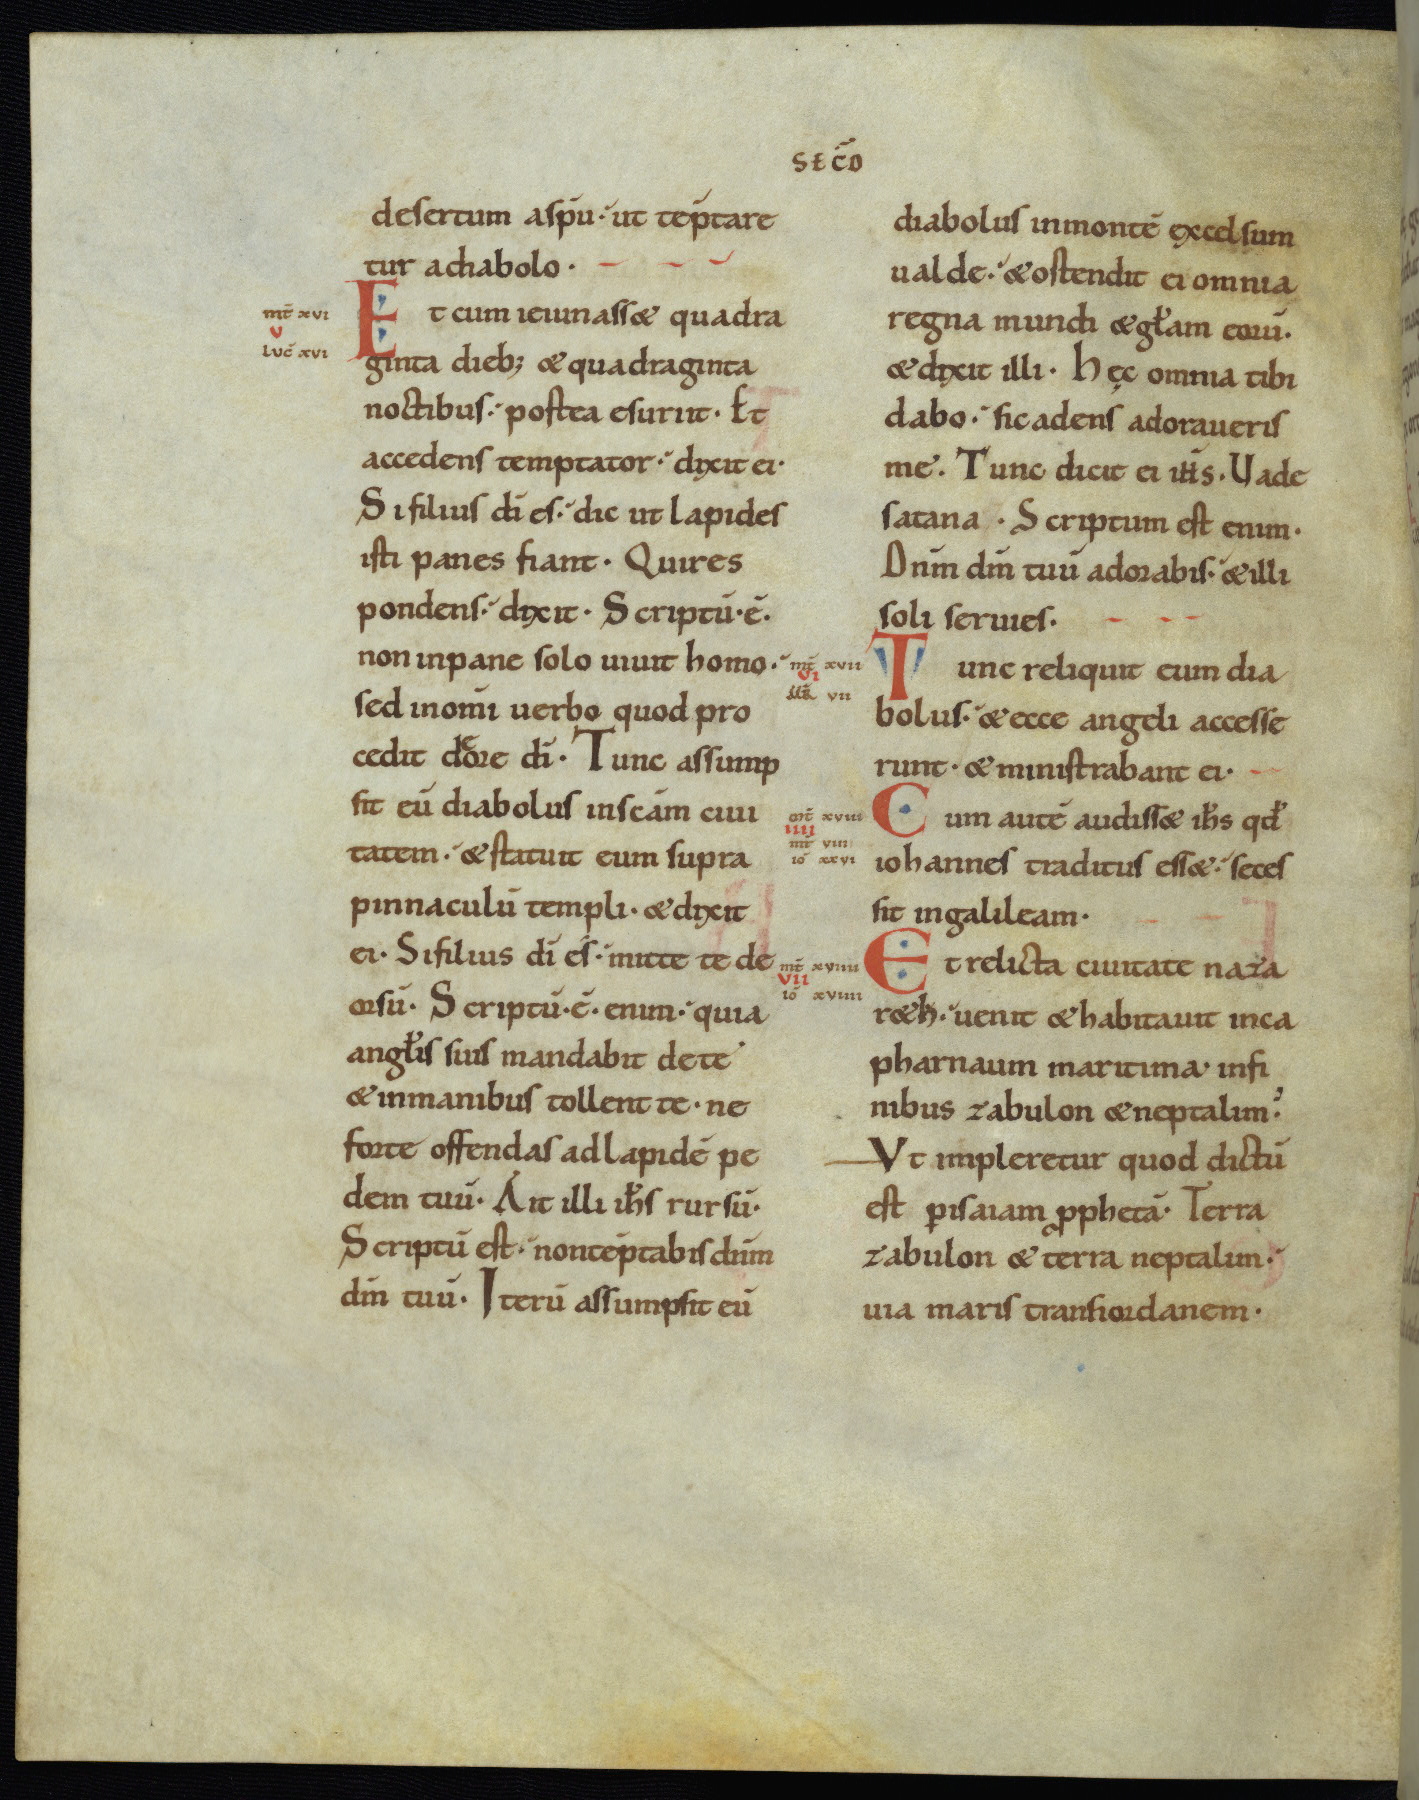 SEC̄D
desertum asp̄u· ut tep̄tare
tur adiabolo·
mt̄ xvi
v
luc̄ xvi
Et cum ieiunass& quadra
ginta dieb; & quadraginta
noctibus· postea esuriit· Et
accedens temptator· dixit ei·
Si filius dī es· dic ut lapides
isti panes fiant· Qui res
pondens· dixit· Scriptū·ē·
non inpane solo uiuit homo·
sed inom̄i uerbo quod pro
cedit deore dī· Tunc assump
sit eū diabolus insc̄am ciui
tatem· & statuit eum supra
pinnaculū templi· & dixit
ei· Si filius dī es· mitte te de
orsū· Scriptū·ē· enim· quia
angłis suis mandabit dete
& inmanibus tollent te· ne
forte offendas adlapidē pe
dem tuū· Ait illi ih̄s rursū·
Scriptū est· nontep̄tabis dn̄m
dm̄ tuū· Iterū assumpsit eū
diabolus inmontē excelsum
ualde· & ostendit ei omnia
regna mundi & gła̅m eorū·
& dixit illi· Hęc omnia tibi
dabo· si cadens adoraueris
me· Tunc dicit ei ih̄s· Uade
satana· Scriptum est enim·
Dn̄m dm̄ tuū adorabis· & illi
soli seruies·
mt̄ xvii
vi
mr̄ vii
Tunc reliquit eum dia
bolus· & ecce angeli accesse
runt· & ministrabant ei·
mt̄ xviii
iiii
mr̄ viii
io̅ xxvi
Cum autē audiss& ih̄s qđ
iohannes traditus ess&· seces
sit ingalileam·
mt̄ xviiii
vii
io̅ xviiii
Et relicta ciuitate naza
r&h· uenit & habitauit inca
pharnaum maritima· infi
nibus zabulon & neptalim·
Ut impleretur quod dictū
est ꝑ isaiam ꝓphetā· Terra
zabulon & terra neptalim·
uia maris transiordanem·